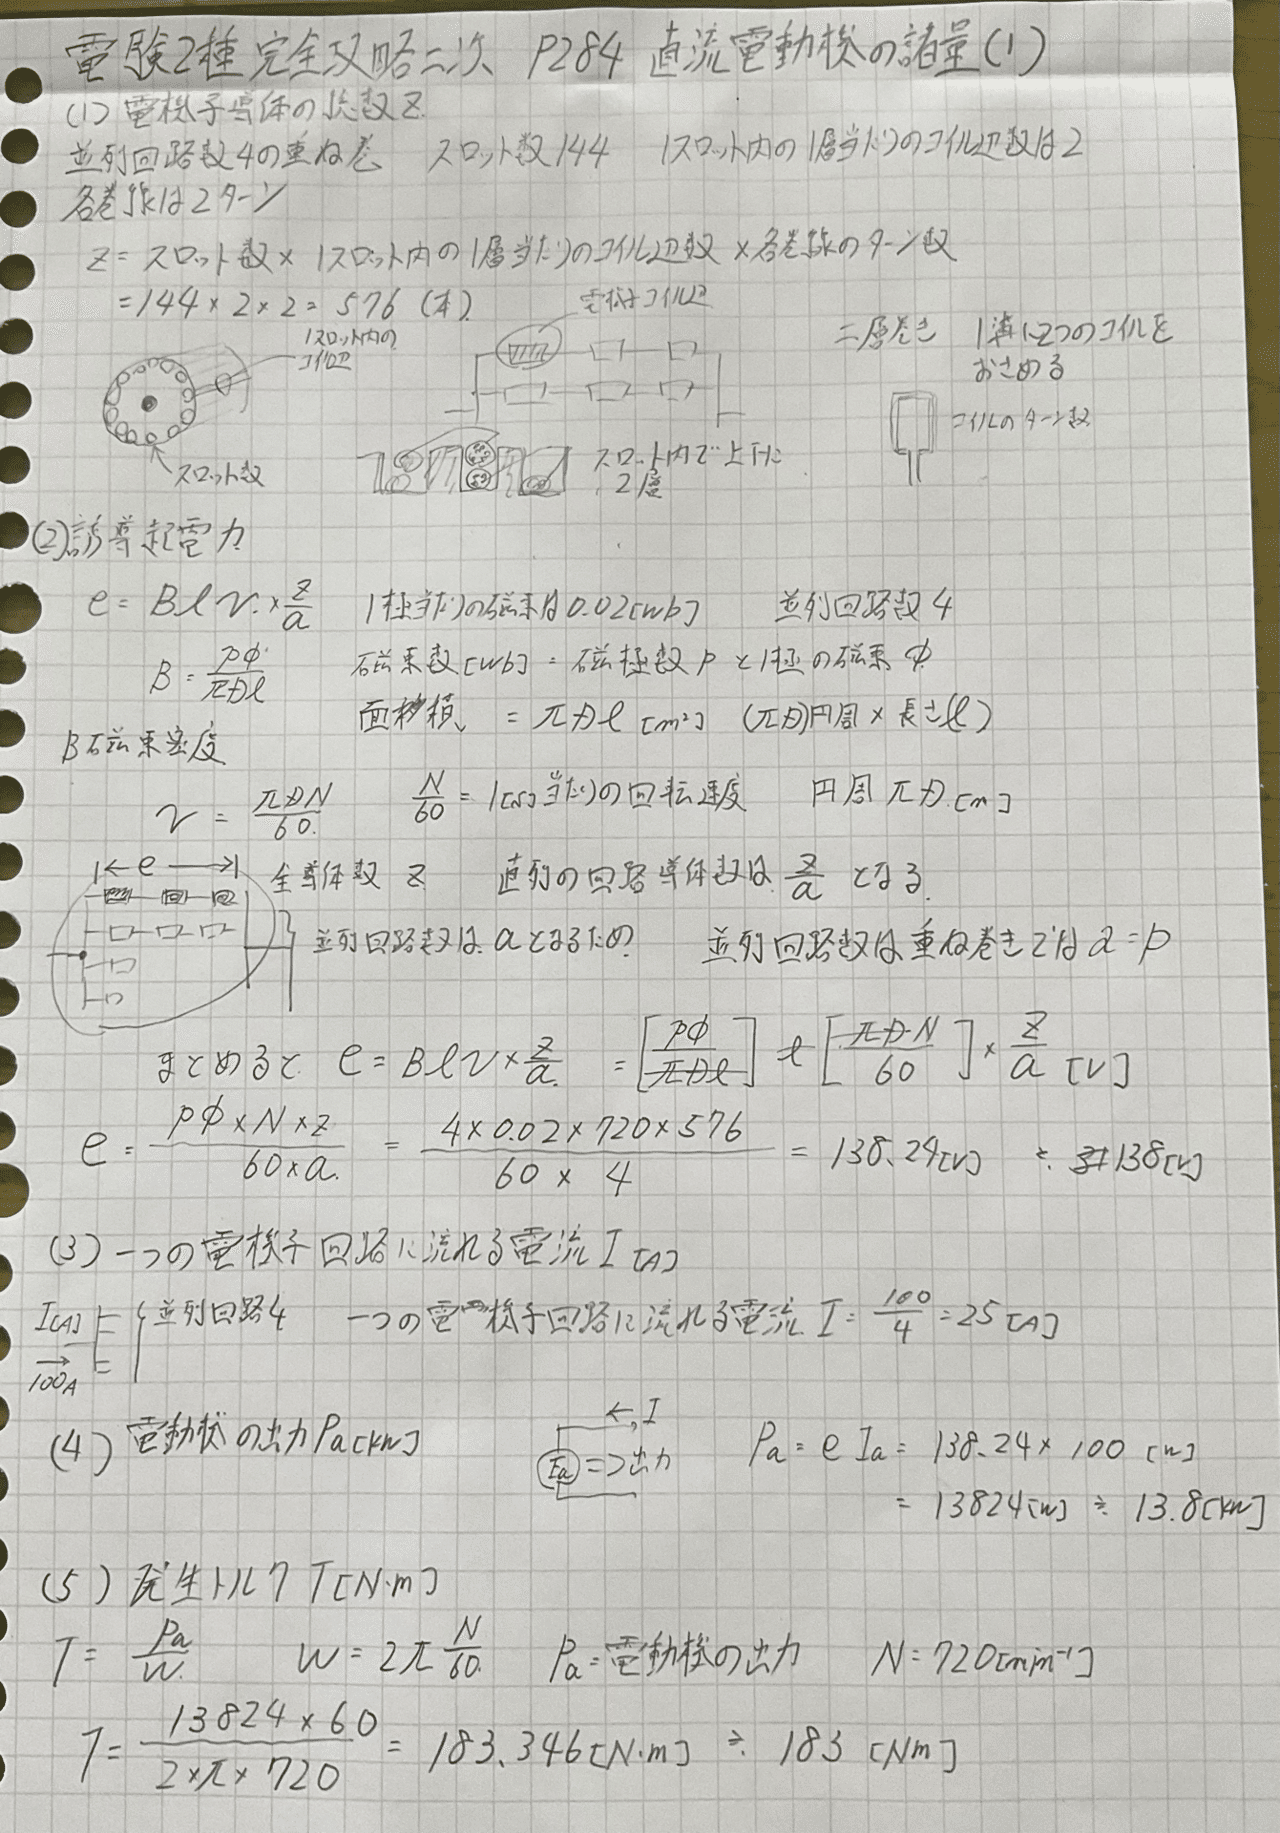 電験2種完全攻略二次 P284 直流電動機の諸量(1)
(1)電機子導体の総数Z
並列回路数4の重ね巻 スロット数144 1スロット内の1層当たりのコイル辺数は2
各巻線は2ターン
Z=スロット数×1スロット内の1層当たりのコイル辺数×各巻線のターン数
=144×2×2=576(本)
電機子コイル辺
1スロット内の
コイル辺
二層巻き 1溝に2つのコイルを
おさめる
コイルのターン数
スロット数
スロット内で上下に
2層
(2)誘導起電力
e=Blv×Z/a 1極当たりの磁束は0.02[wb] 並列回路数4
B=pφ/πDl 磁束数[wb]=磁極数pと1極の磁束φ
面積 =πDl[m²] (πD)円周×長さl)
B磁束密度
v=πDN/60 N/60=1[s]当たりの回転速度 円周πD[m]
e 全導体数Z 直列の回路導体数はZ/aとなる
並列回路数はaとなるため 並列回路数は重ね巻きではa=p
まとめると e=Blv×Z/a =[pφ/πDl]l[πDN/60]×Z/a[V]
e=pφ×N×Z/60×a=4×0.02×720×576/60×4=138.24[V] ≒138[V]
(3)一つの電機子回路に流れる電流I[A]
I[A] 並列回路4 一つの電機子回路に流れる電流I=100/4=25[A]
→
100A
(4)電動機の出力Pa[kW]
←I
Ea⇒出力 Pa=eIa=138.24×100[W]
=13824[W]≒13.8[kW]
(5)発生トルクT[N・m]
T=Pa/W W=2πN/60 Pa=電動機の出力 N=720[min⁻¹]
T=13824×60/2×π×720=183.346[N・m]≒183[Nm]